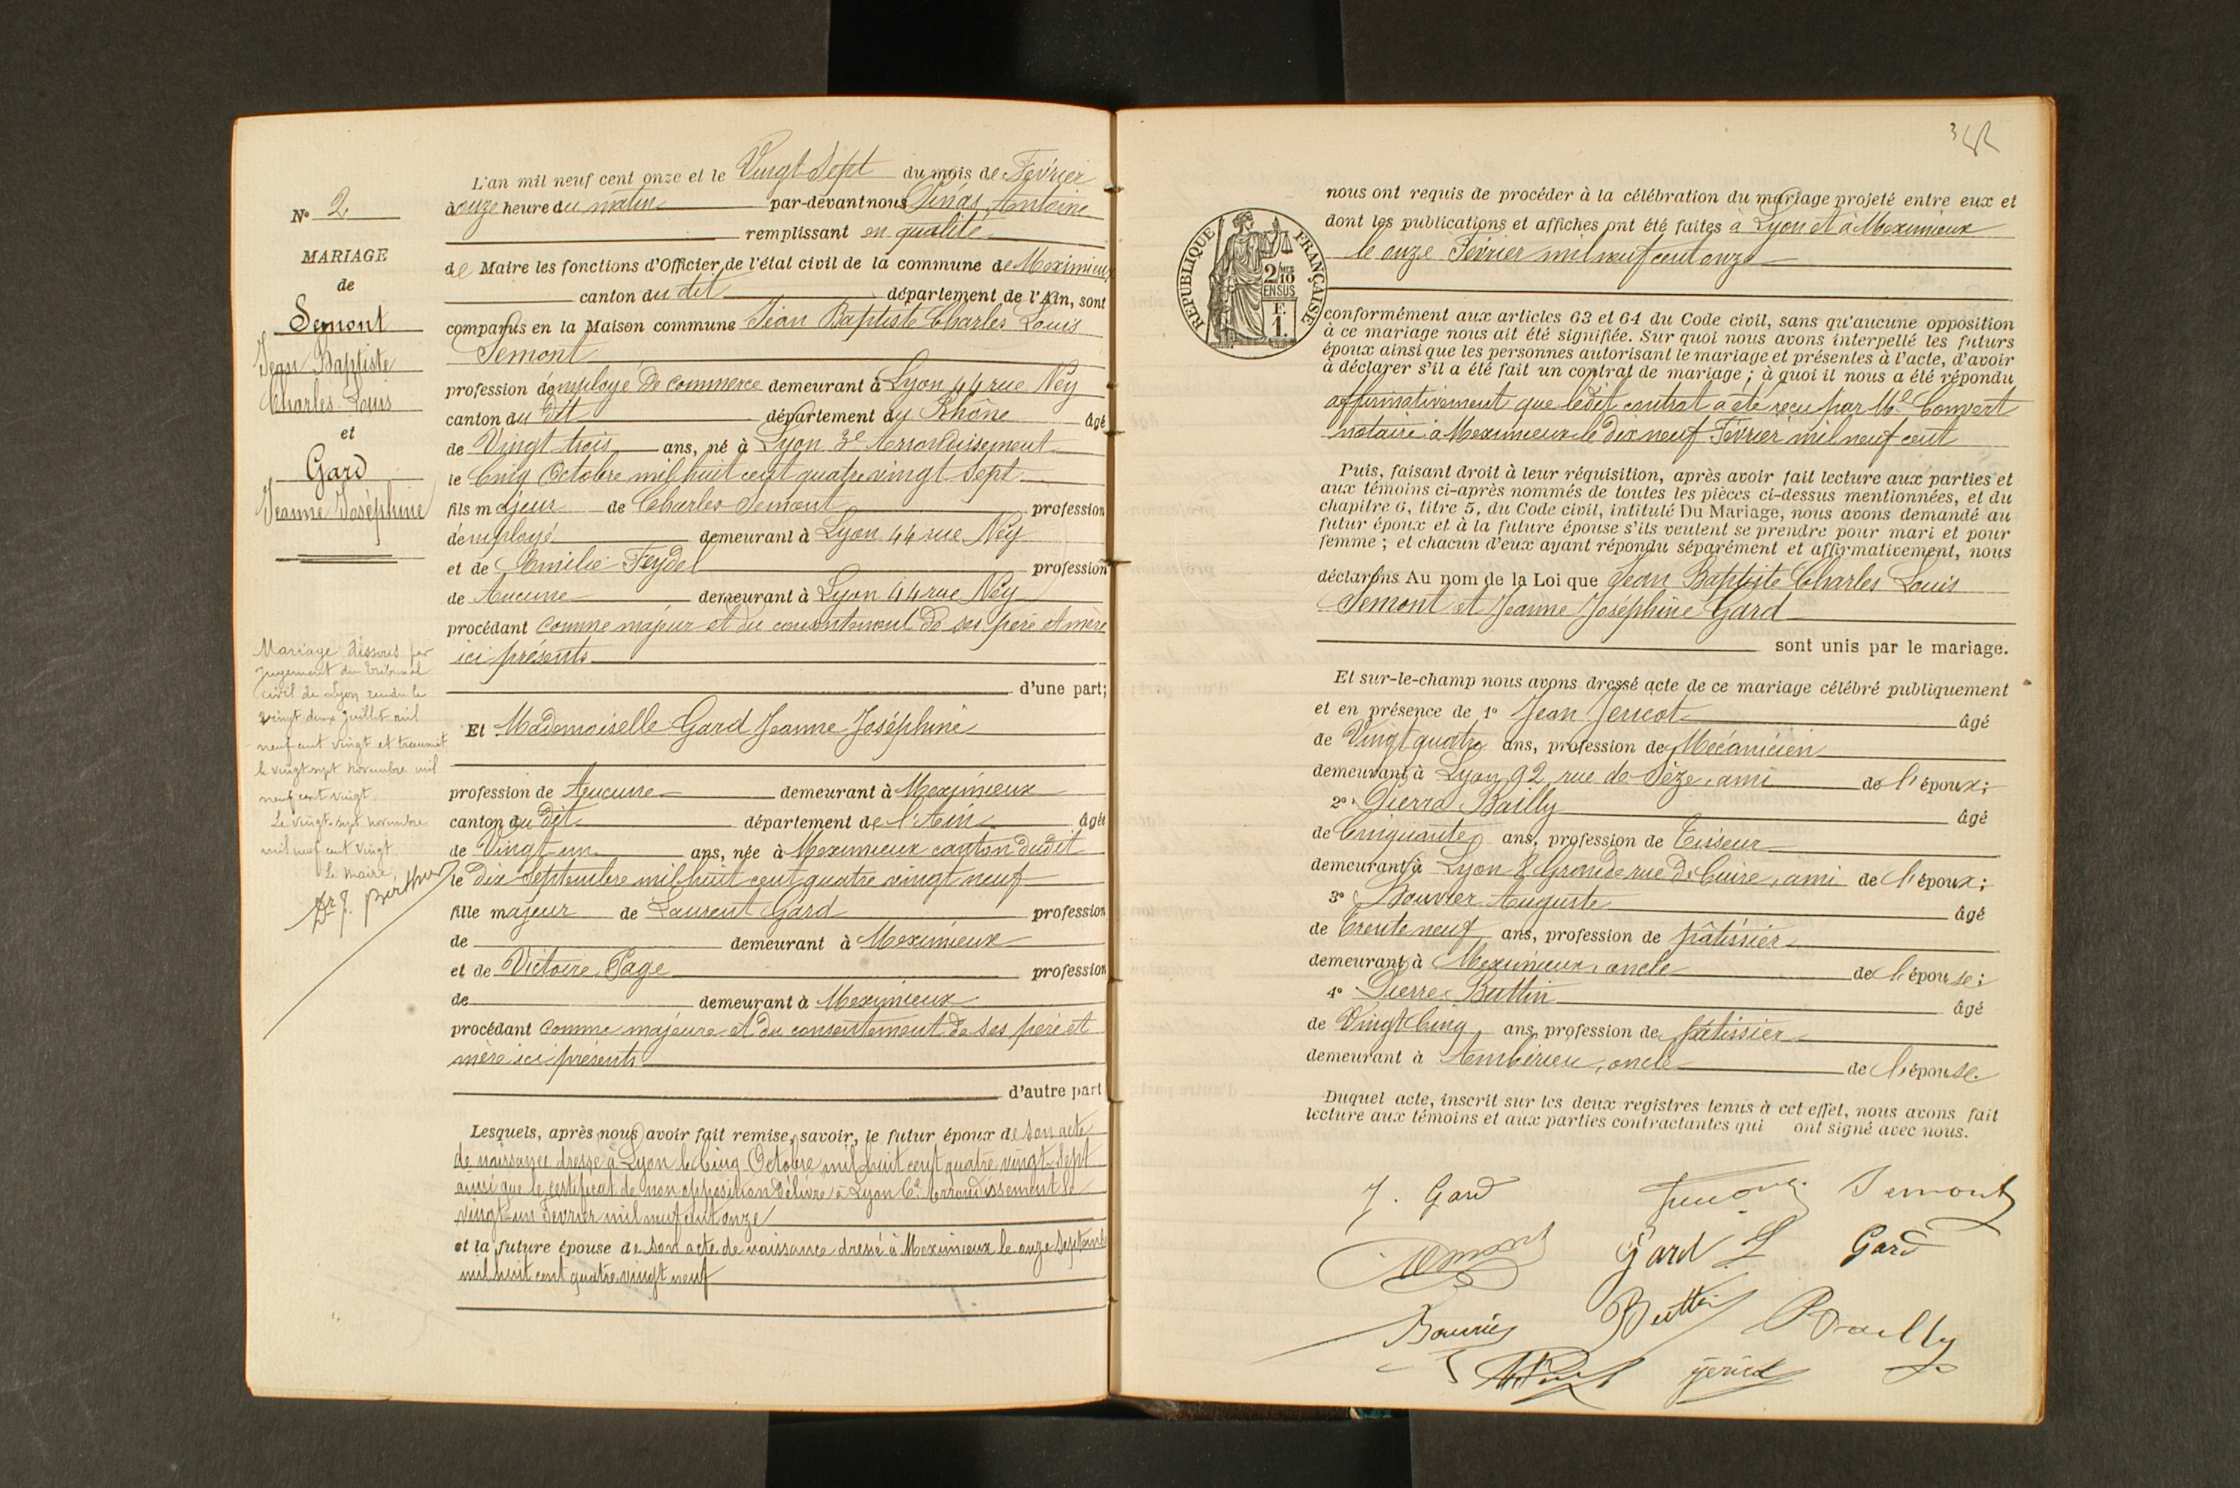 N° 2
MARIAGE
de
Semont
Jean Baptiste
Charles Louis
et
Gard
Jeanne Joséphine
Mariage dissous par
jugement du tribunal
civil de Lyon rendu le
vingt deux juillet mil
neuf cent vingt et transcrit
le vingt sept novembre mil
neuf cent vingt
Le vingt-sept novembre
mil neuf cent vingt
Le Maire,
L'an mil neuf cent onze et le Vingt Sept du mois de Février
à onze heure du matin par-devant nous Antoine
remplissant en qualité
de Maire les fonctions d'Officier de l'état civil de la commune de Meximieux
canton du dit département de l'Ain, sont
comparus en la Maison commune Jean Baptiste Charles Louis
Semont
profession d'employé de commerce demeurant à Lyon 44 rue Ney
canton du dit département du Rhône âgé
de Vingt trois ans, né à Lyon 3e Arrondissement
le Cinq Octobre mil huit cent quatre vingt Sept
fils majeur de Charles Semont profession
d'employé demeurant à Lyon 44 rue Ney
et de Emilie Feydel profession
de Aucune demeurant à Lyon 44 rue Ney
procédant comme majeur et du consentement de ses père et mère
ici présents
d'une part;
Et Mademoiselle Gard Jeanne Joséphine
profession de Aucune demeurant à Meximieux
canton du dit département de l'Ain âgée
de Vingt un ans, née à Meximieux canton dudit
le dix Septembre mil huit cent quatre vingt neuf
fille majeur de Laurent Gard profession
de demeurant à Meximieux
et de Victoire Page profession
de demeurant à Meximieux
procédant comme majeure et du consentement de ses père et
mère ici présents
d'autre part
Lesquels, après nous avoir fait remise, savoir, le futur époux de son acte
de naissance dressé à Lyon le Cinq Octobre mil huit cent quatre vingt Sept
ainsi que le certificat de non opposition délivré à Lyon 6e Arrondissement le
vingt un Fevrier mil neuf cent onze
et la future épouse de son acte de naissance dressé à Meximieux le onze Septembre
mil huit cent quatre vingt neuf
3
RÉPUBLIQUE FRANÇAISE
2/10 MES
EN SUS
F.
1.
nous ont requis de procéder à la célébration du mariage projeté entre eux et
dont les publications et affiches ont été faites à Lyon et à Meximieux
le onze Février mil neuf cent onze
conformément aux articles 63 et 64 du Code civil, sans qu'aucune opposition
à ce mariage nous ait été signifiée. Sur quoi nous avons interpellé les futurs
époux ainsi que les personnes autorisant le mariage et présentes à l'acte, d'avoir
à déclarer s'il a été fait un contrat de mariage; à quoi il nous a été répondu
affirmativement que ledit contrat a été reçu par Me Convert
notaire à Meximieux le dix neuf Février mil neuf cent
Puis, faisant droit à leur réquisition, après avoir fait lecture aux parties et
aux témoins ci-après nommés de toutes les pièces ci-dessus mentionnées, et du
chapitre 6, titre 5, du Code civil, intitulé Du Mariage, nous avons demandé au
futur époux et à la future épouse s'ils veulent se prendre pour mari et pour
femme; et chacun d'eux ayant répondu séparément et affirmativement, nous
déclarons Au nom de la Loi que Jean Baptiste Charles Louis
Semont et Jeanne Joséphine Gard
sont unis par le mariage.
Et sur-le-champ nous avons dressé acte de ce mariage célébré publiquement
et en présence de 1° Jean Jericot âgé
de Vingt quatre ans, profession de Mécanicien
demeurant à Lyon 92 rue de Sèze, ami de l'époux;
2° Pierre Bailly âgé
de Cinquante ans, profession de Tisseur
demeurant à Lyon 8 Grande rue de Cuire, ami de l'époux;
3° Bouvier Auguste âgé
de trente neuf ans, profession de pâtissier
demeurant à Meximieux, oncle de l'épouse;
4° Pierre Buttin âgé
de Vingt Cinq ans, profession de pâtissier
demeurant à Ambérieu, oncle de l'épouse.
Duquel acte, inscrit sur les deux registres tenus à cet effet, nous avons fait
lecture aux témoins et aux parties contractantes qui ont signé avec nous.
J. Gard Semont
Semont Gard L Gard
Bouvier Buttin Bailly
Jericot